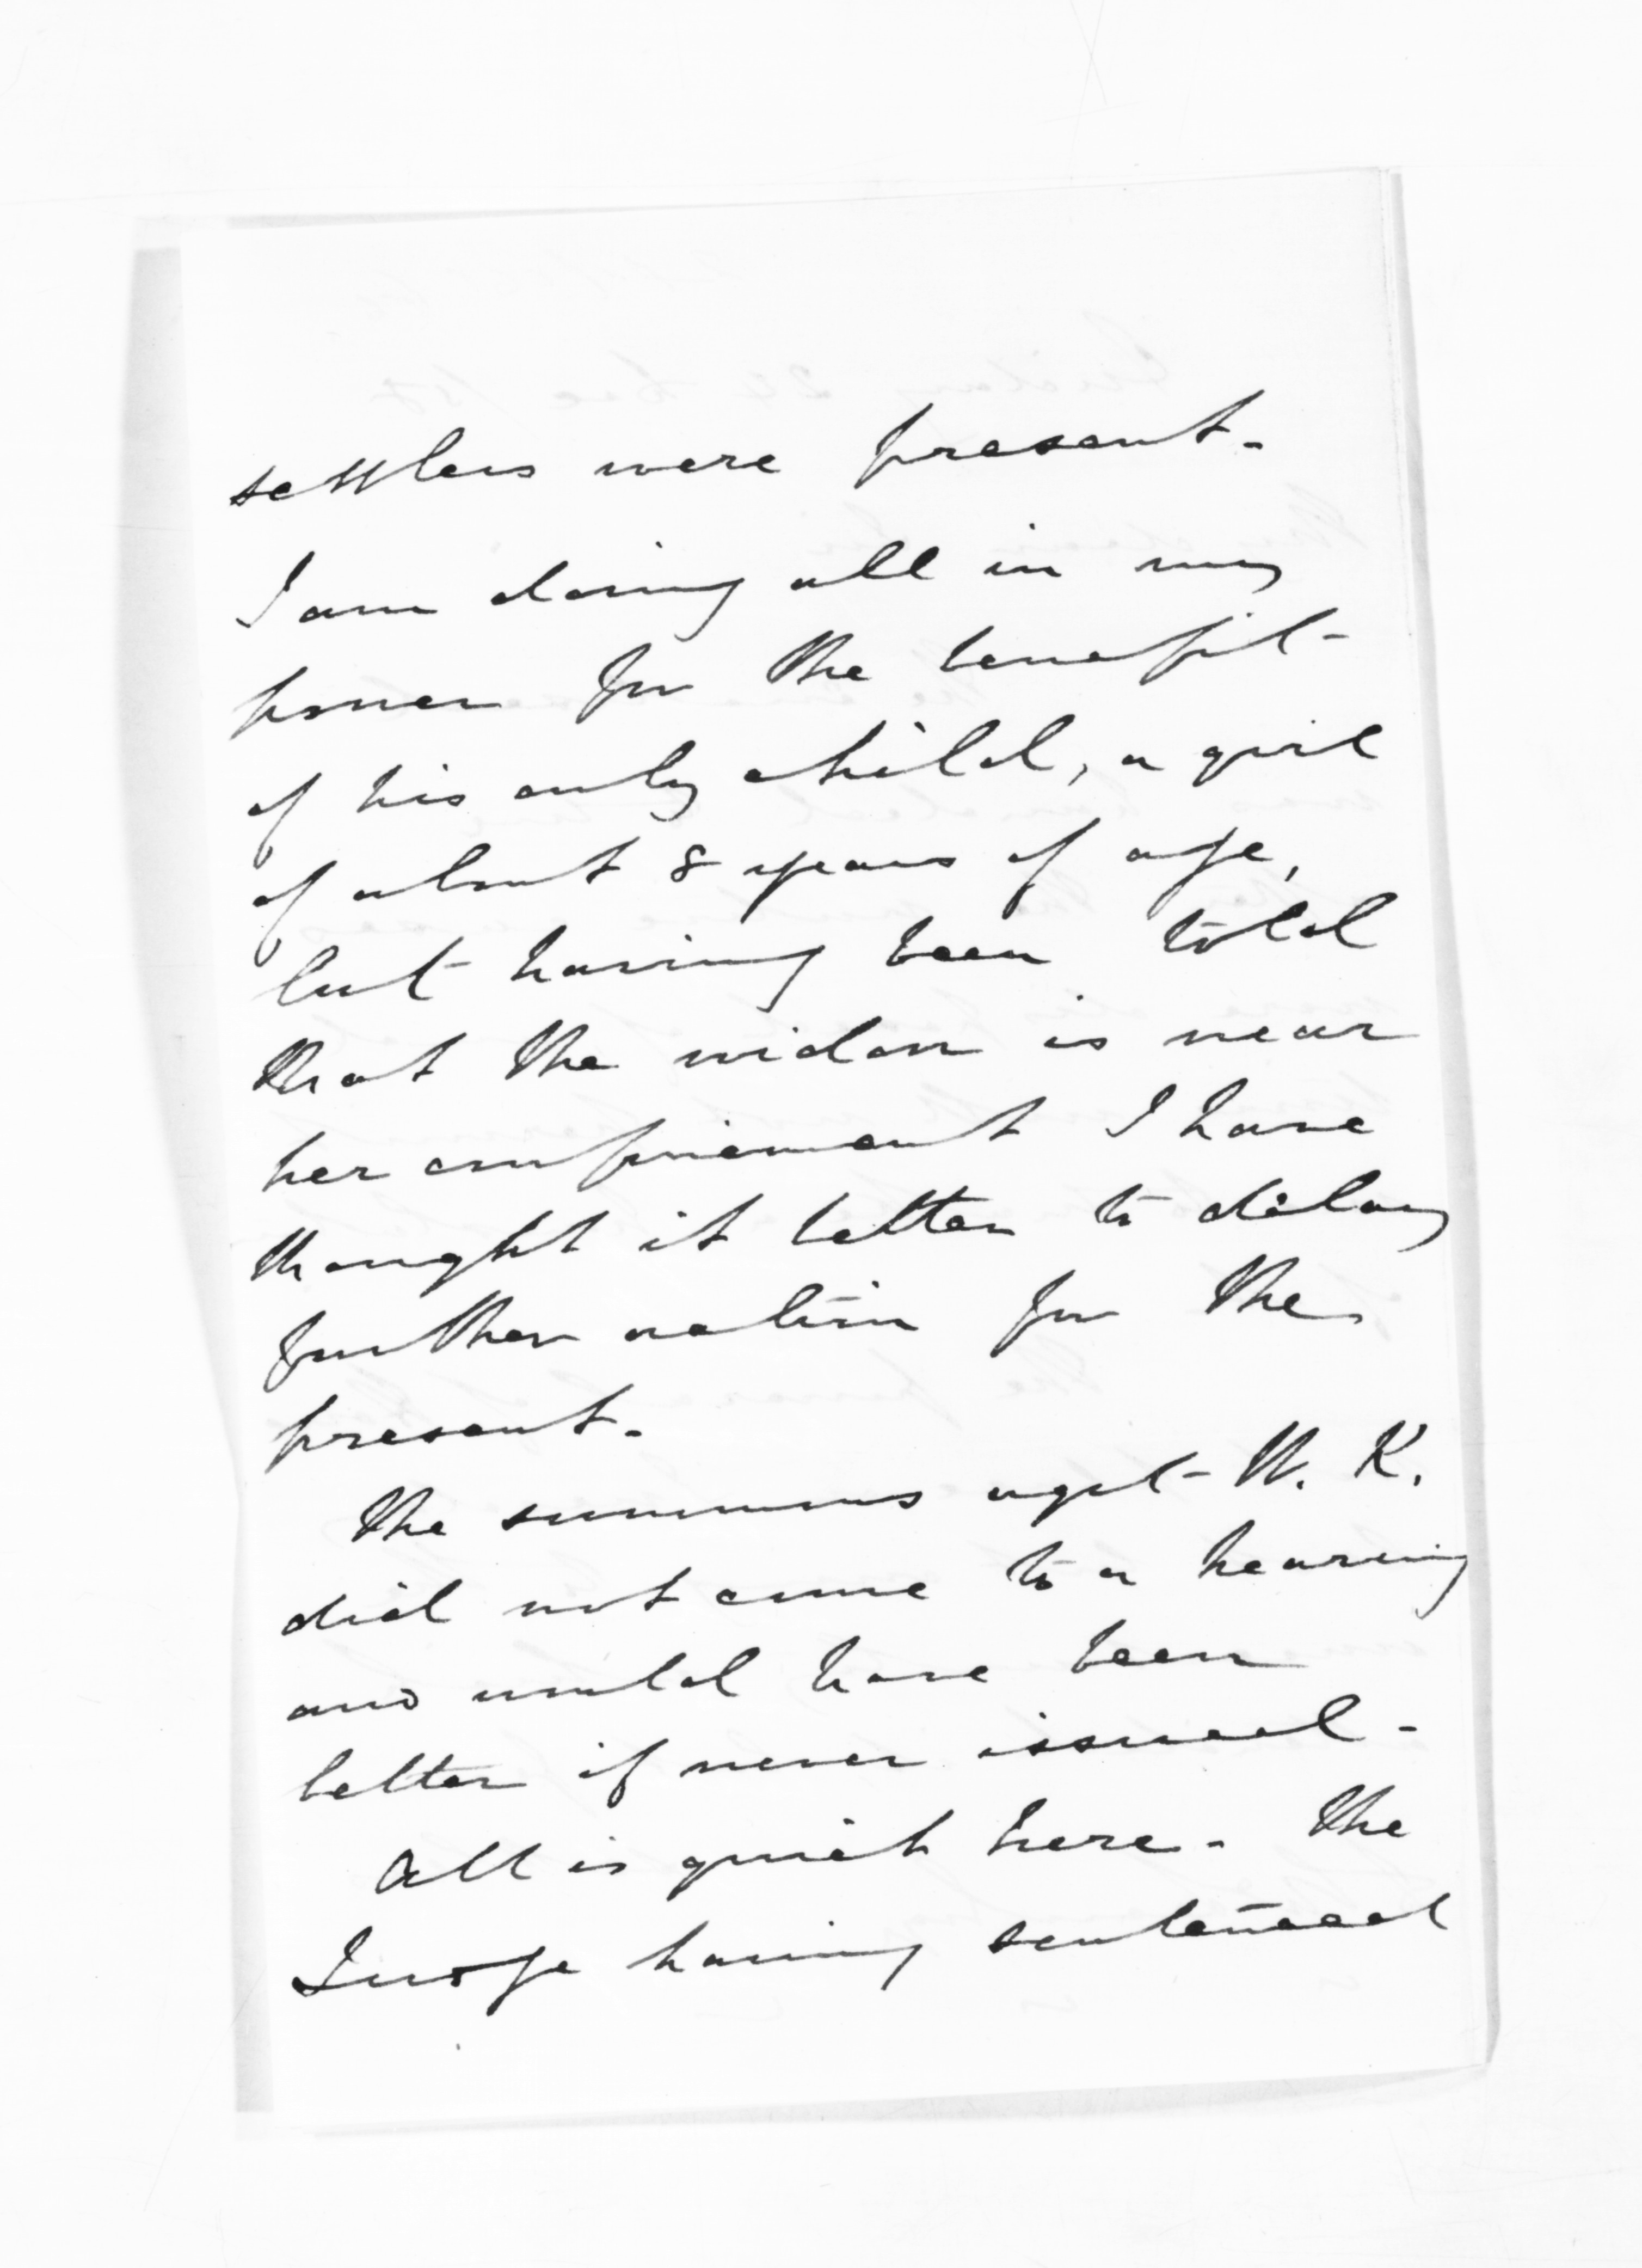 settlers were present.
I am doing all in my
power for the benefit
of his only child, a girl
of about 8 years of age,
but having been told
that the widow is near
her confinement I have
thought it better to delay
further action for the
present.
The summons agst W. K.
did not come to a hearing
and would have been
better if never issued.
All is quiet here. The
Judge having sentenced